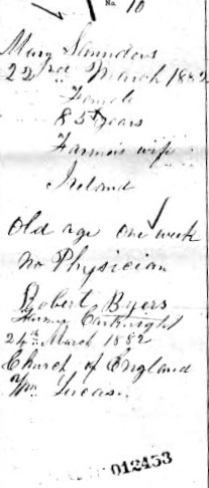 No. 10
Mary Saunders
22nd March 1882
Female
85 years
Farmer's wife
Ireland
Old age one week
no Physician
Robert Byers
Farmer Cartwright
24th March 1882
Church of England
Wm Lucas
012453